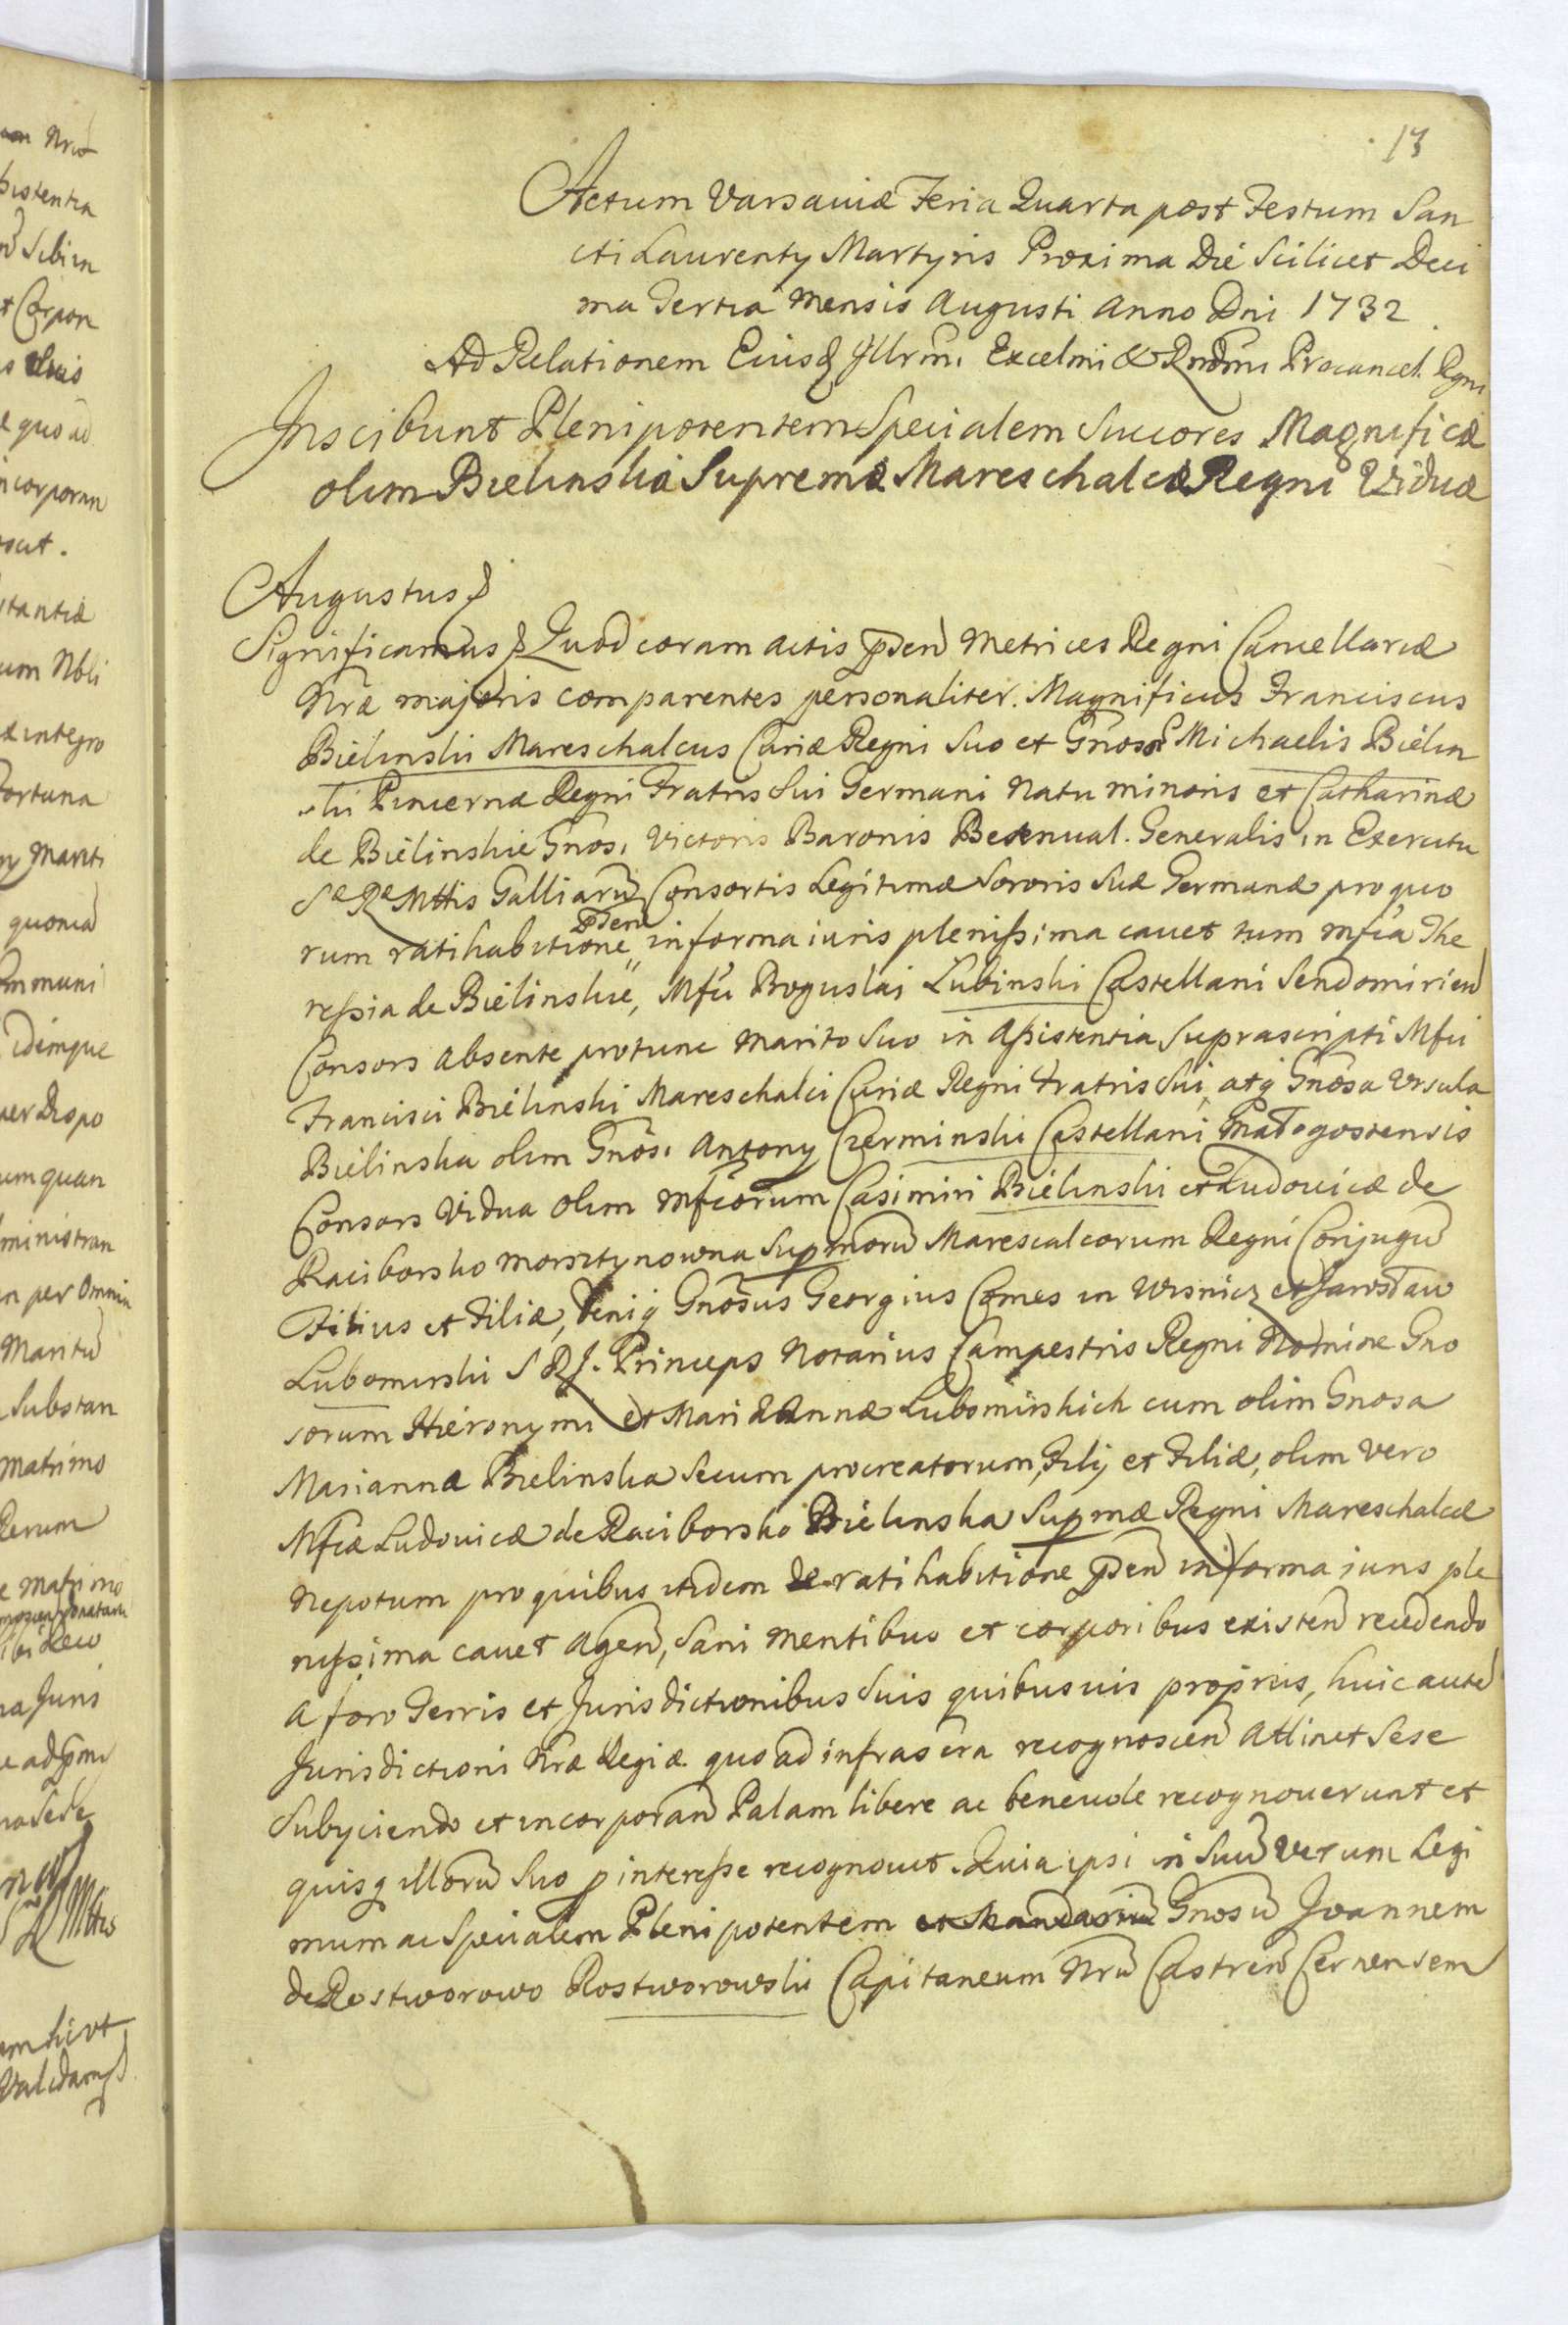 13
Actum Varsaviæ Feria Quarta post Festum San
cti Laurenty Martyris Proxima Die Scilicet Deci
ma Tertia Mensis Augusti Anno Dni 1732.
Ad Relationem Eiusd Illrmi Excelmi & Rndmi Procancel. Rgni
Inscibunt Plenipotentem Specialem Succores Magnificæ
olim Bielinska Supremæ Mareschalcæ Regni Viduæ
Augustus
Significamus Quod coram actis pden Metrices Regni Cancellariæ
Nræ majoris comparentes personaliter. Magnificus Franciscus
Bielinski Mareschalcus Curiæ Regni Suo et Gnosi Michaelis Bielin
ski Pincernæ Regni Fratris Sui Germani Natu minoris et Catharinæ
de Bielinskie Gnosi Victoris Baronis Besenual. Generalis in Exercitu
Sæ Ræ Mttis Galliarū Consortis Legitimæ Sororis Suæ Germanæ pro quo
rum ratihabitione pden in forma iuris plenissima cauet tum Mfica The
ressia de Bielinskie, Mfci Boguslai Lubinski Castellani Sendomirien
Consors absente protunc marito Suo in Assistentia Suprascripti Mfci
Francisci Bielinski Mareschalci Curiæ Regni Fratris Sui, atq Gnosa Ursula
Bielinska olim Gnosi Antony Czerminski Castellani Małogostensis
Consors Vidua olim Mficorum Casimiri Bielinski et Ludovicæ de
Raciborsko Morsztynowna Supmorū Marescalcorum Regni Conjugū
Filius et Filiæ, Deniq Gnosus Georgius Comes in Wisnicz et Jarosław
Lubomirski S R J. Princeps Notarius Campestris Regni Nomine Gno
sorum Hieronymi et Mariæ Annæ Lubomirskich cum olim Gnosa
Marianna Bielinska Secum procreatorum, Filij et Filiæ, olim vero
Mficæ Ludovicæ de Raciborsko Bielinska Supmæ Regni Mareschalcæ
Nepotum pro quibus itidem de ratihabitione pden in forma iuris ple
nissima cauet Agen, Sani Mentibus et corporibus existen recedendo
a foro Terris et Jurisdictionibus Suis quibusuis proprijs, huic autē
Jurisdictioni Nræ Regiæ quo ad infrascra recognoscen attinet Sese
Subyciendo et incorporan Palam libere ac beneuole recognouerunt et
quisq illorū Suo p interesse recognouit. Quia ipsi in Suū Verum Legi
mum ac Specialem Plenipotentem et Mandatariū Gnosū Joannem
de Rostworowo Rostworowski Capitaneum Nrū Castren Cernensem